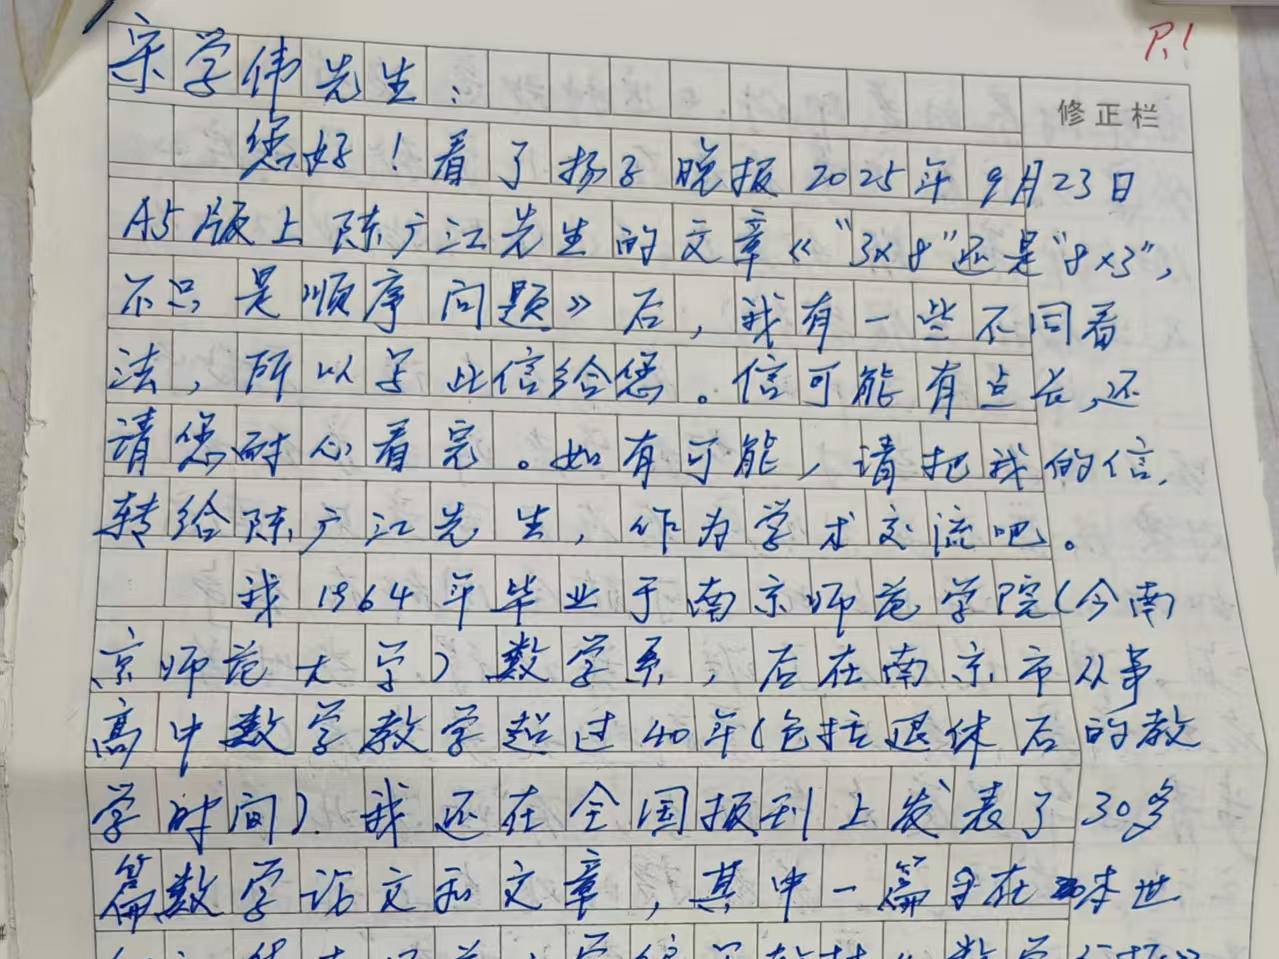 P.1
宋学伟先生:
修正栏
您好!看了扬子晚报2025年9月23日
A5版上陈广江先生的文章《“3×8”还是“8×3”,
不只是顺序问题》后,我有一些不同看
法,所以写此信给您。信可能有点长,还
请您耐心看完。如有可能,请把我的信,
转给陈广江先生,作为学术交流吧。
我1964年毕业于南京师范学院(今南
京师范大学)数学系,后在南京市从事
高中数学教学超过40年(包括退休后的教
学时间).我还在全国报刊上发表了30多
篇数学论文和文章,其中一篇在本世